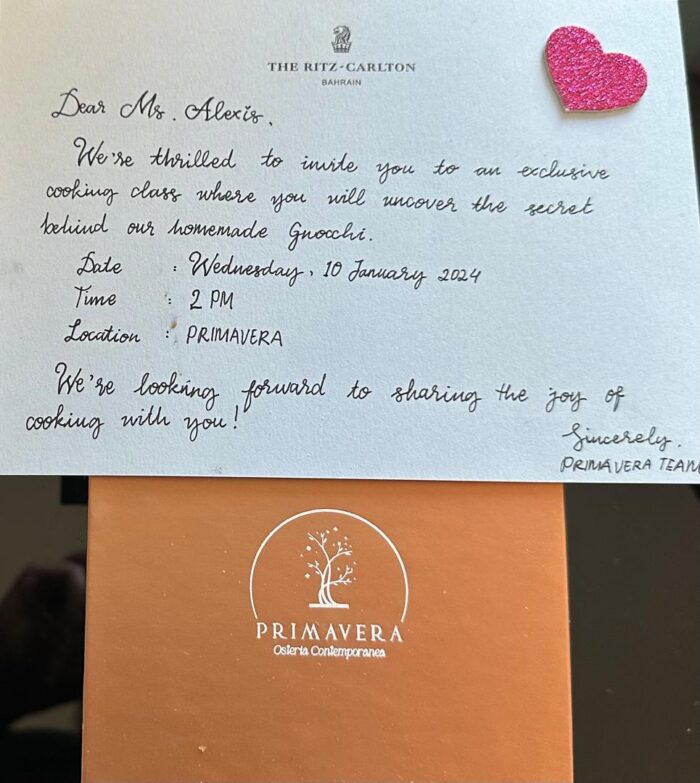 THE RITZ-CARLTON
BAHRAIN
Dear Ms. Alexis,
We're thrilled to invite you to an exclusive
cooking class where you will uncover the secret
behind our homemade Gnocchi.
Date : Wednesday, 10 January 2024
Time : 2 PM
Location : PRIMAVERA
We're looking forward to sharing the joy of
cooking with you!
Sincerely.
PRIMAVERA TEAM
PRIMAVERA
Osteria Contemporanea